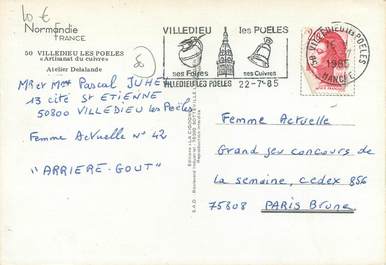 10 €
Normandie
FRANCE
50 VILLEDIEU LES POELES
«Artisanat du cuivre»
Atelier Delalande
VILLEDIEU les POELES
ses Foires ses Cuivres
VILLEDIEU LES POELES 22-7-85
50 VILLEDIEU LES POELES
1985
MANCHE
Mr et Mme Pascal JUHEL
13 cité St ETIENNE
50800 VILLEDIEU les Poêles
Femme Actuelle N° 42
"ARRIERE-GOUT"
Femme Actuelle
Grand jeu concours de
la semaine, cedex 856
75808 PARIS Brune